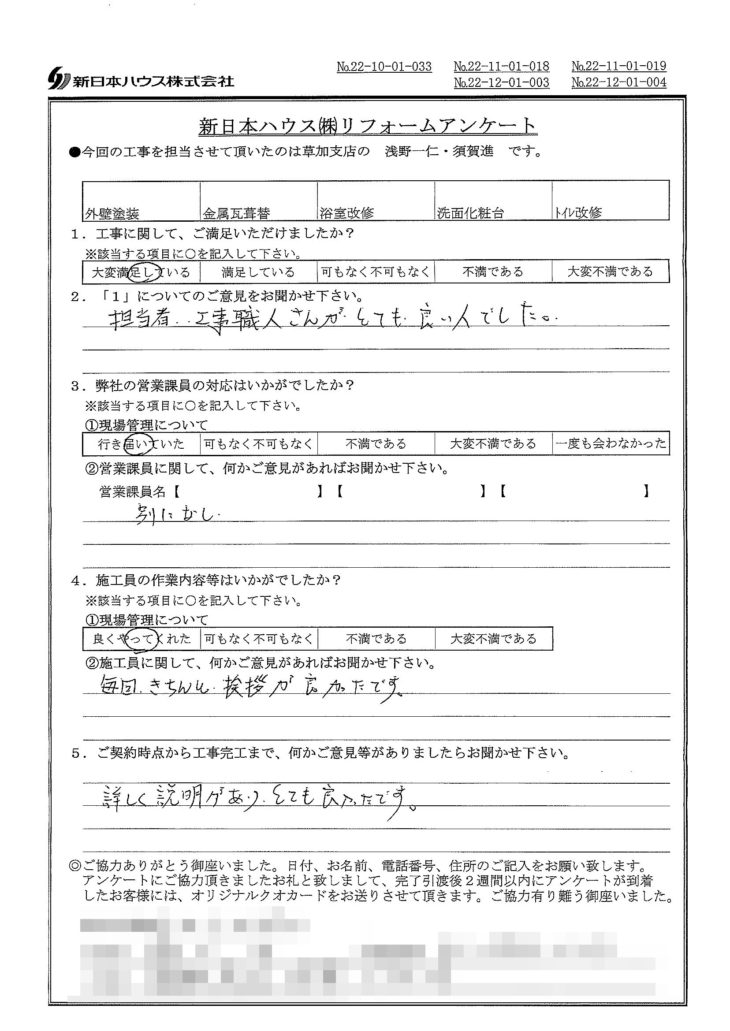 新日本ハウス株式会社
№22-10-01-033 №22-11-01-018 №22-11-01-019
№22-12-01-003 №22-12-01-004
新日本ハウス㈱リフォームアンケート
●今回の工事を担当させて頂いたのは草加支店の 浅野一仁・須賀進 です。
外壁塗装 金属瓦葺替 浴室改修 洗面化粧台 ﾄｲﾚ改修
1．工事に関して、ご満足いただけましたか？
※該当する項目に○を記入して下さい。
大変満足している 満足している 可もなく不可もなく 不満である 大変不満である
2．「1」についてのご意見をお聞かせ下さい。
担当者、工事職人さんが、とても良い人でした。
3．弊社の営業課員の対応はいかがでしたか？
※該当する項目に○を記入して下さい。
①現場管理について
行き届いていた 可もなく不可もなく 不満である 大変不満である 一度も会わなかった
②営業課員に関して、何かご意見があればお聞かせ下さい。
営業課員名【 】【 】【 】
別になし.
4．施工員の作業内容等はいかがでしたか？
※該当する項目に○を記入して下さい。
①現場管理について
良くやってくれた 可もなく不可もなく 不満である 大変不満である
②施工員に関して、何かご意見があればお聞かせ下さい。
毎回、きちんと、挨拶が良かったです。
5．ご契約時点から工事完工まで、何かご意見等がありましたらお聞かせ下さい。
詳しく説明があり、とても良かったです。
◎ご協力ありがとう御座いました。日付、お名前、電話番号、住所のご記入をお願い致します。
アンケートにご協力頂きましたお礼と致しまして、完了引渡後2週間以内にアンケートが到着
したお客様には、オリジナルクオカードをお送りさせて頂きます。ご協力有り難う御座いました。